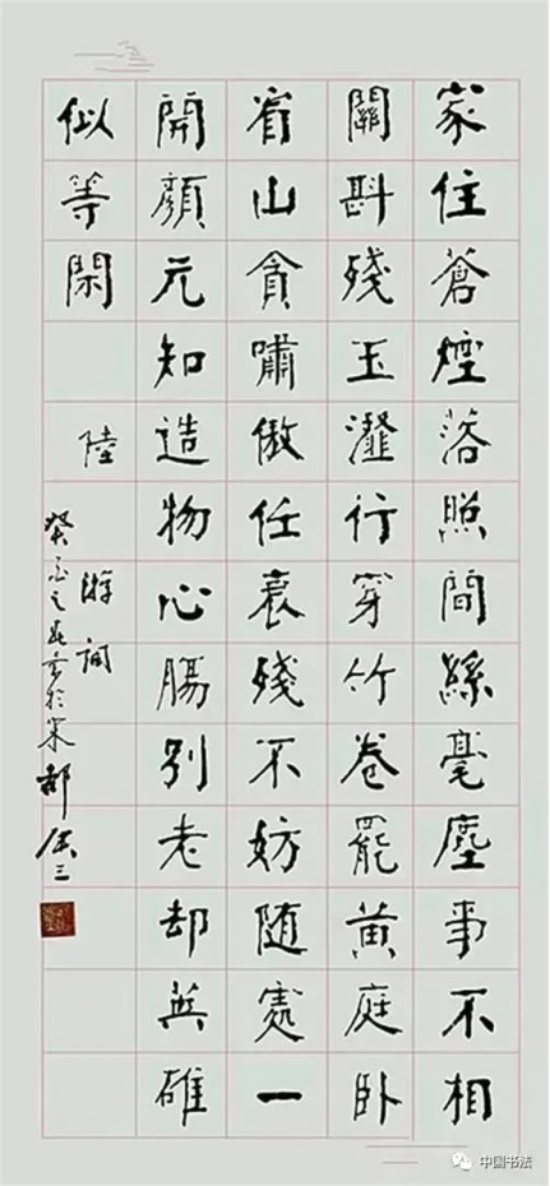 家住蒼煙落照間絲毫塵事不相
關斟殘玉瀣行穿竹卷罷黄庭卧
看山貪嘯傲任衰殘不妨随處一
開顔元知造物心腸別老却英雄
似等閑 陸游詞
癸之春書於宋都三
中国书法